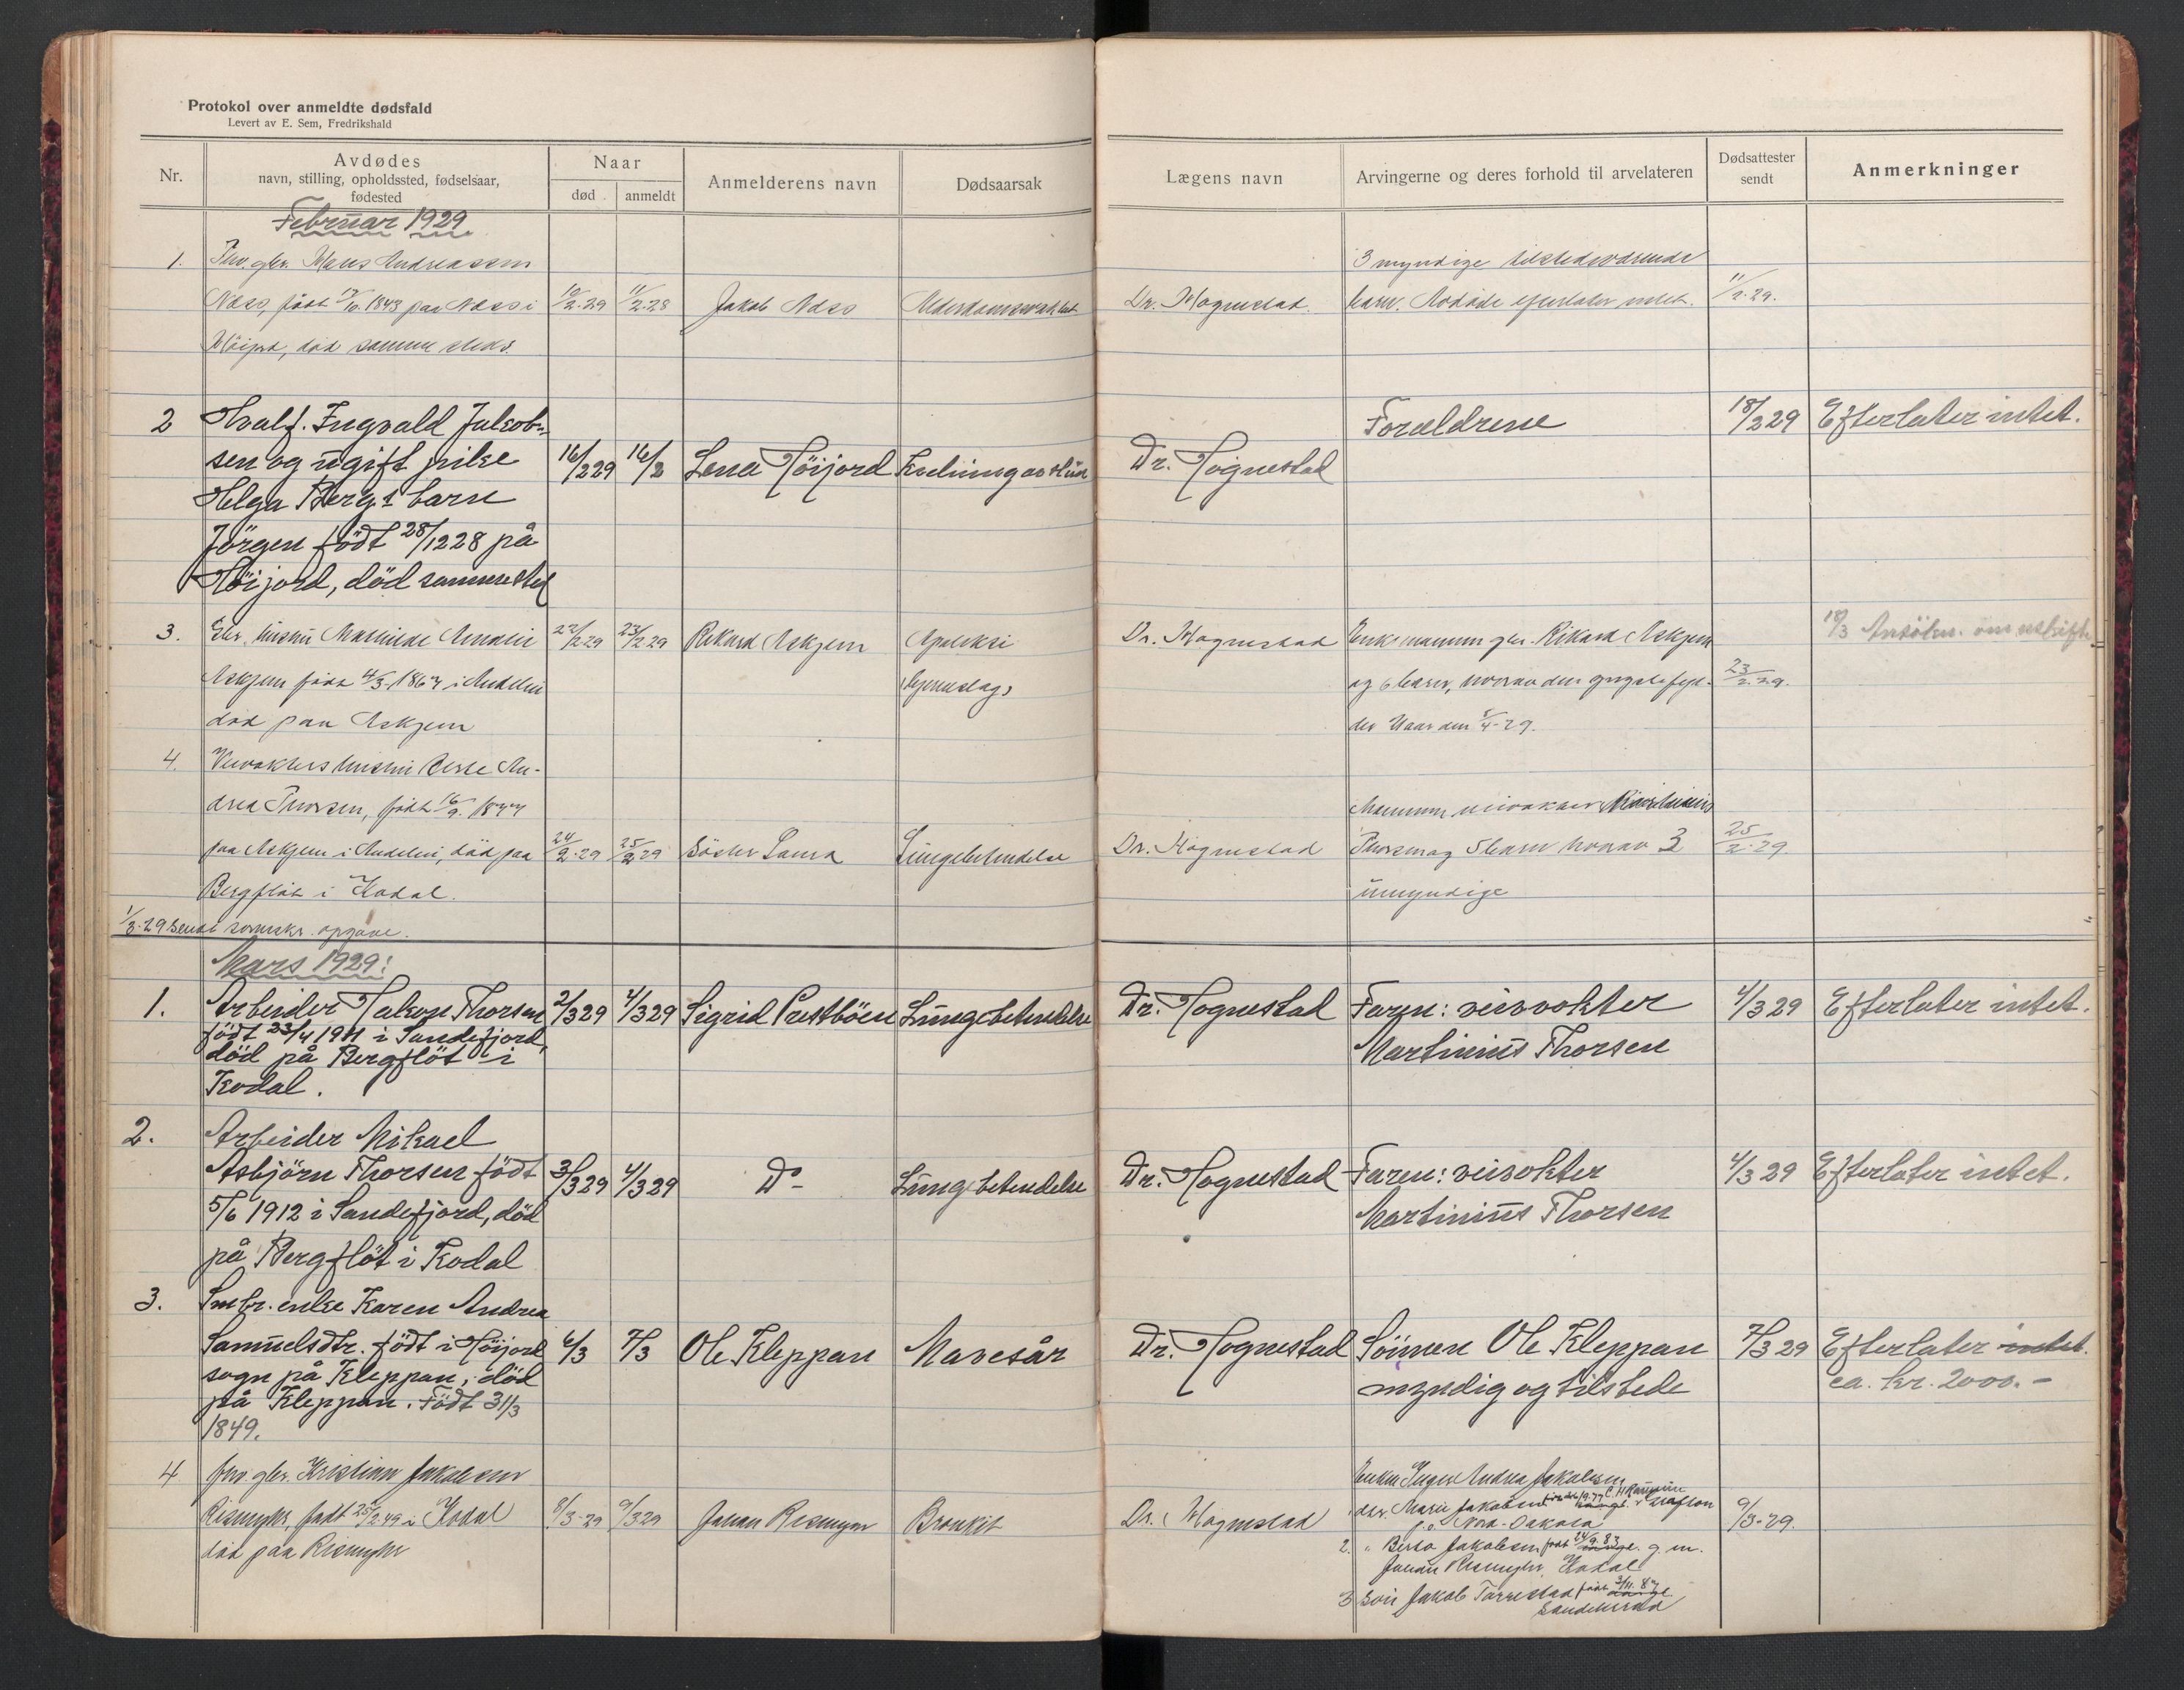 Protokol over anmeldte dødsfald
Levert av E. Sem, Fredrikshald
Nr.
Avdødes
navn, stilling, opholdssted, fødselsaar,
fødested
Naar
død
anmeldt
Anmelderens navn
Dødsaarsak
Lægens navn
Arvingerne og deres forhold til arvelateren
Dødsattester
sendt
Anmerkninger
Februar 1929
1. Hans Andreassen
Næss, født 1843 paa Næss i
Høijord, død samme steds.
10/2-29 11/2-28 Jakob Næss
Dr. Hognestad.
3 myndige tilstedeværende
barn. Avdøde efterlater intet.
11/2-29.
2 Hvalf. Ingvald Jakob-
sen og ugift pike
Helga Bergs barn
Jörgen födt 28/12 28 på
Höijord, död sammested
16/2 29 16/2 Lena Höijord
Dr. Hognestad
Forældrene
18/2 29 Efterlater intet.
3. Gbr. hustru Mathilde Amalie
Askjem født 4/3-1867 i Andebu
død paa Askjem
22/2 29 23/2 29 Rikard Askjem Apoleksi
Dr. Hognestad Enkemannen gbr. Rikard Askjem
og 6 barn, hvorav den yngste fyl-
der
23/2-29.
4. Veivokters hustru
drea Thorsen, født 16/9. 1877
paa Askjem i Andebu, død paa
Bergfløt i Kodal.
24/2-29 25/2 29 Søster Laura Lungebetendelse
Dr. Hognestad
Mannen veivokter Martinius
Thorsen og 5 barn hvorav 3
umyndige
25/2-29.
1/3-29 Sendt opgave.
Mars 1929:
1. Arbeider Hakon Thorsen
födt 23/4 1911 i Sandefjord,
död på Bergflöt i
Kodal.
2/3 29 4/3 29 Sigrid Prestböen Lungebetendelse
Dr. Hognestad Faren: veivokter
Martinius Thorsen
4/3 29 Efterlater intet.
2. Arbeider Mikael
Asbjörn Thorsen födt
5/6 1912 i Sandefjord, död
på Bergflöt i Kodal
3/3 29 4/3 29 Do- Lungebetendelse
Dr. Hognestad Faren: veivokter
Martinius Thorsen
4/3 29 Efterlater intet.
3. Smbr. enke Karen Andrea
Samuelsdtr. födt i Höijord
sogn på Kleppan, död
på Kleppan. Födt 31/3
1849.
6/3 7/3 Ole Kleppan Mavesår
Dr. Hognestad Sönnen Ole Kleppan
myndig og tilstede
7/3 29 Efterlater intet.
ca. kr. 2000.-
4 Kristian Jakobsen
Rismyhr, født 25/2 49 i Kodal
død paa Rismyhr
8/3-29 9/3 29 Johan Rismyhr Bronkit
Dr. Hognestad
Enken Inger Andrea Jakobsen
1 dtr. Marie Jakobsen
Nord-Dakota
2. " Berta Jakobsen født 24/9. 83 g.m.
Johan Rismyhr, Kodal
3 søn Jakob født 3/11. 87
Sandeherred
9/3-29.